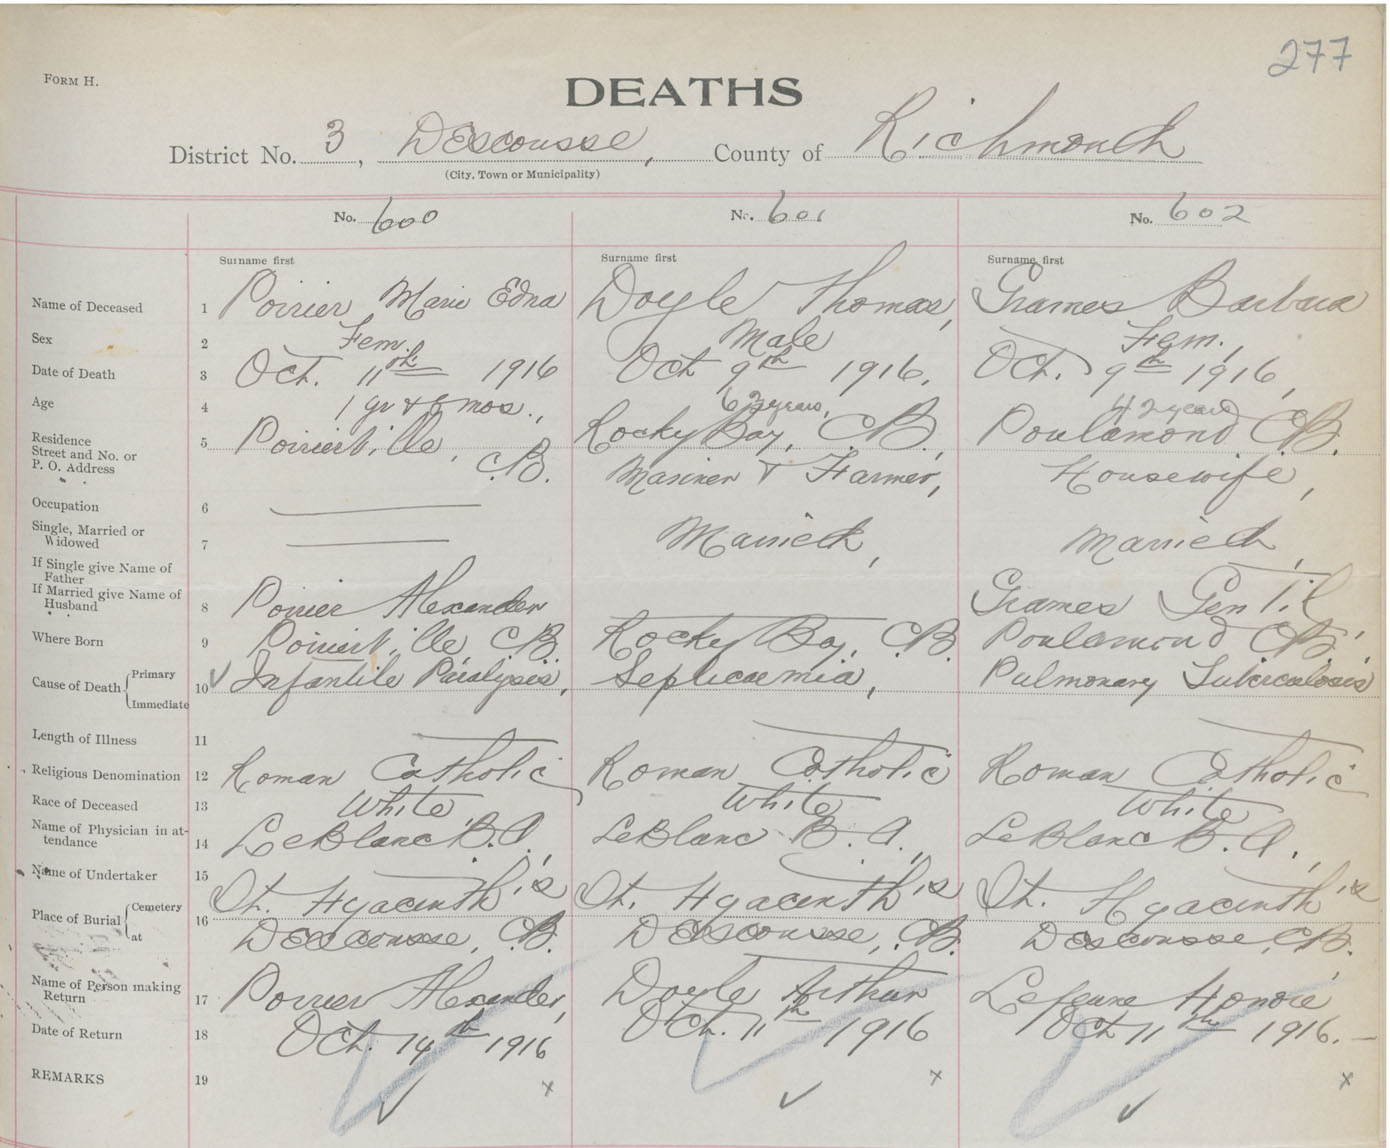 277
FORM H.
DEATHS
District No. 3, Descousse, County of Richmond
(City, Town or Municipality)
No. 600 No. 601 No. 602
Surname first Surname first Surname first
Name of Deceased 1 Poirier Marie Edna Doyle Thomas, Grames Barbara
Sex 2 Fem. Male Fem.,
Date of Death 3 Oct. 11th 1916 Oct 9th 1916. Oct. 9th 1916,
Age 4 1 yr & 8 mos., 62 years, 42 years
Residence Street and No. or P. O. Address 5 Poirierville, C.B. Rocky Bay, C.B. Poulamond C.B.
Occupation 6 Mariner & Farmer, Housewife,
Single, Married or Widowed 7 Married, Married,
If Single give Name of Father
If Married give Name of Husband 8 Poirier Alexander Grames Gentil,
Where Born 9 Poirierville C.B. Rocky Bay, C.B. Poulamond C.B.
Cause of Death Primary Immediate 10 ✓ Infantile Paralysis, Septicaemia, Pulmonary Tuberculosis
Length of Illness 11
Religious Denomination 12 Roman Catholic Roman Catholic Roman Catholic
Race of Deceased 13 White White White
Name of Physician in attendance 14 LeBlanc B.A., LeBlanc B.A., LeBlanc B.A.,
Name of Undertaker 15
Place of Burial Cemetery 16 St. Hyacinth's St. Hyacinth's St. Hyacinth's
at Descousse, C.B. Descousse, C.B. Descousse, C.B.
Name of Person making Return 17 Poirier Alexander, Doyle Arthur Lejeune Honore
Date of Return 18 Oct. 14th 1916 Oct. 11th 1916 Oct 11th 1916.
REMARKS 19 ✓ x ✓ x ✓ x